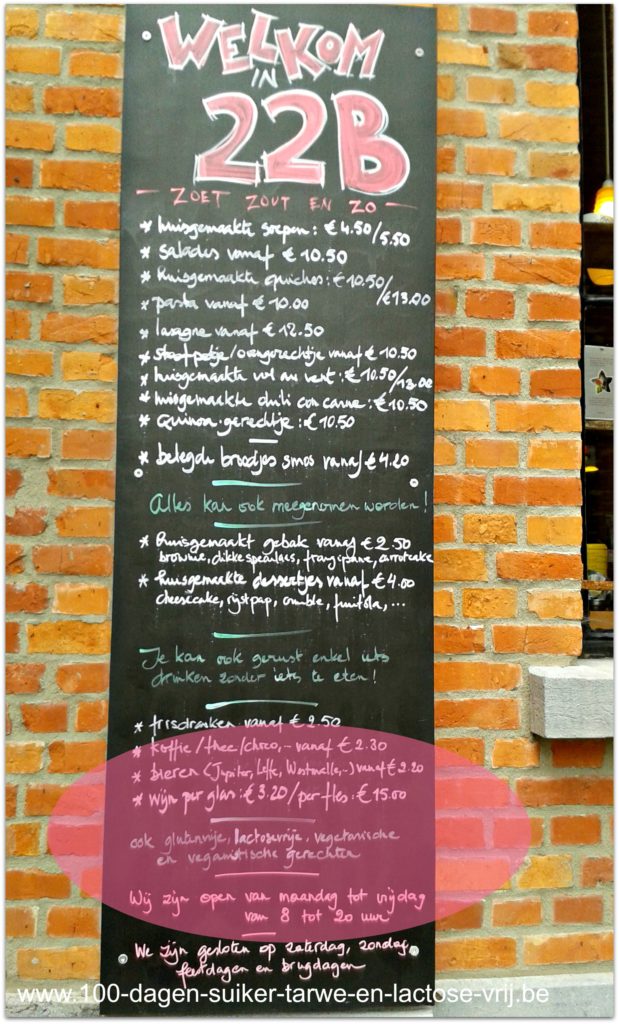 WELKOM
IN
22B
- ZOET ZOUT EN ZO -
* huisgemaakte soepen: € 4.50/5.50
* salades vanaf € 10.50
* huisgemaakte quiches: € 10.50/€13.00
* pasta vanaf € 10.00
* lasagne vanaf € 12.50
* stoofpotje/ovengerechtje vanaf € 10.50
* huisgemaakte vol au vent: € 10.50/13.00
* huisgemaakte chili con carne: € 10.50
* Quinoa-gerechtje: €10.50
* belegde broodjes smos vanaf € 4.20
Alles kan ook meegenomen worden!
* Huisgemaakt gebak vanaf € 2.50
brownie, dikke speculaas, frangipane, carrotcake
* Huisgemaakte dessertjes vanaf € 4.00
cheesecake, rijstpap, crumble, ...
Je kan ook gerust enkel iets
drinken zonder iets te eten!
* frisdranken vanaf € 2.50
* koffie/thee/choco,- vanaf € 2.30
* bieren (Jupiler, Leffe, Westmalle,-) vanaf € 2.20
* wijn per glas: € 3.20/per fles: € 15.00
ook glutenvrije, lactosevrije, vegetarische
en veganistische gerechten
Wij zijn open van maandag tot vrijdag
van 8 tot 20 uur
We zijn gesloten op zaterdag, zondag,
feestdagen en brugdagen
www.100-dagen-suiker-tarwe-en-lactose-vrij.be